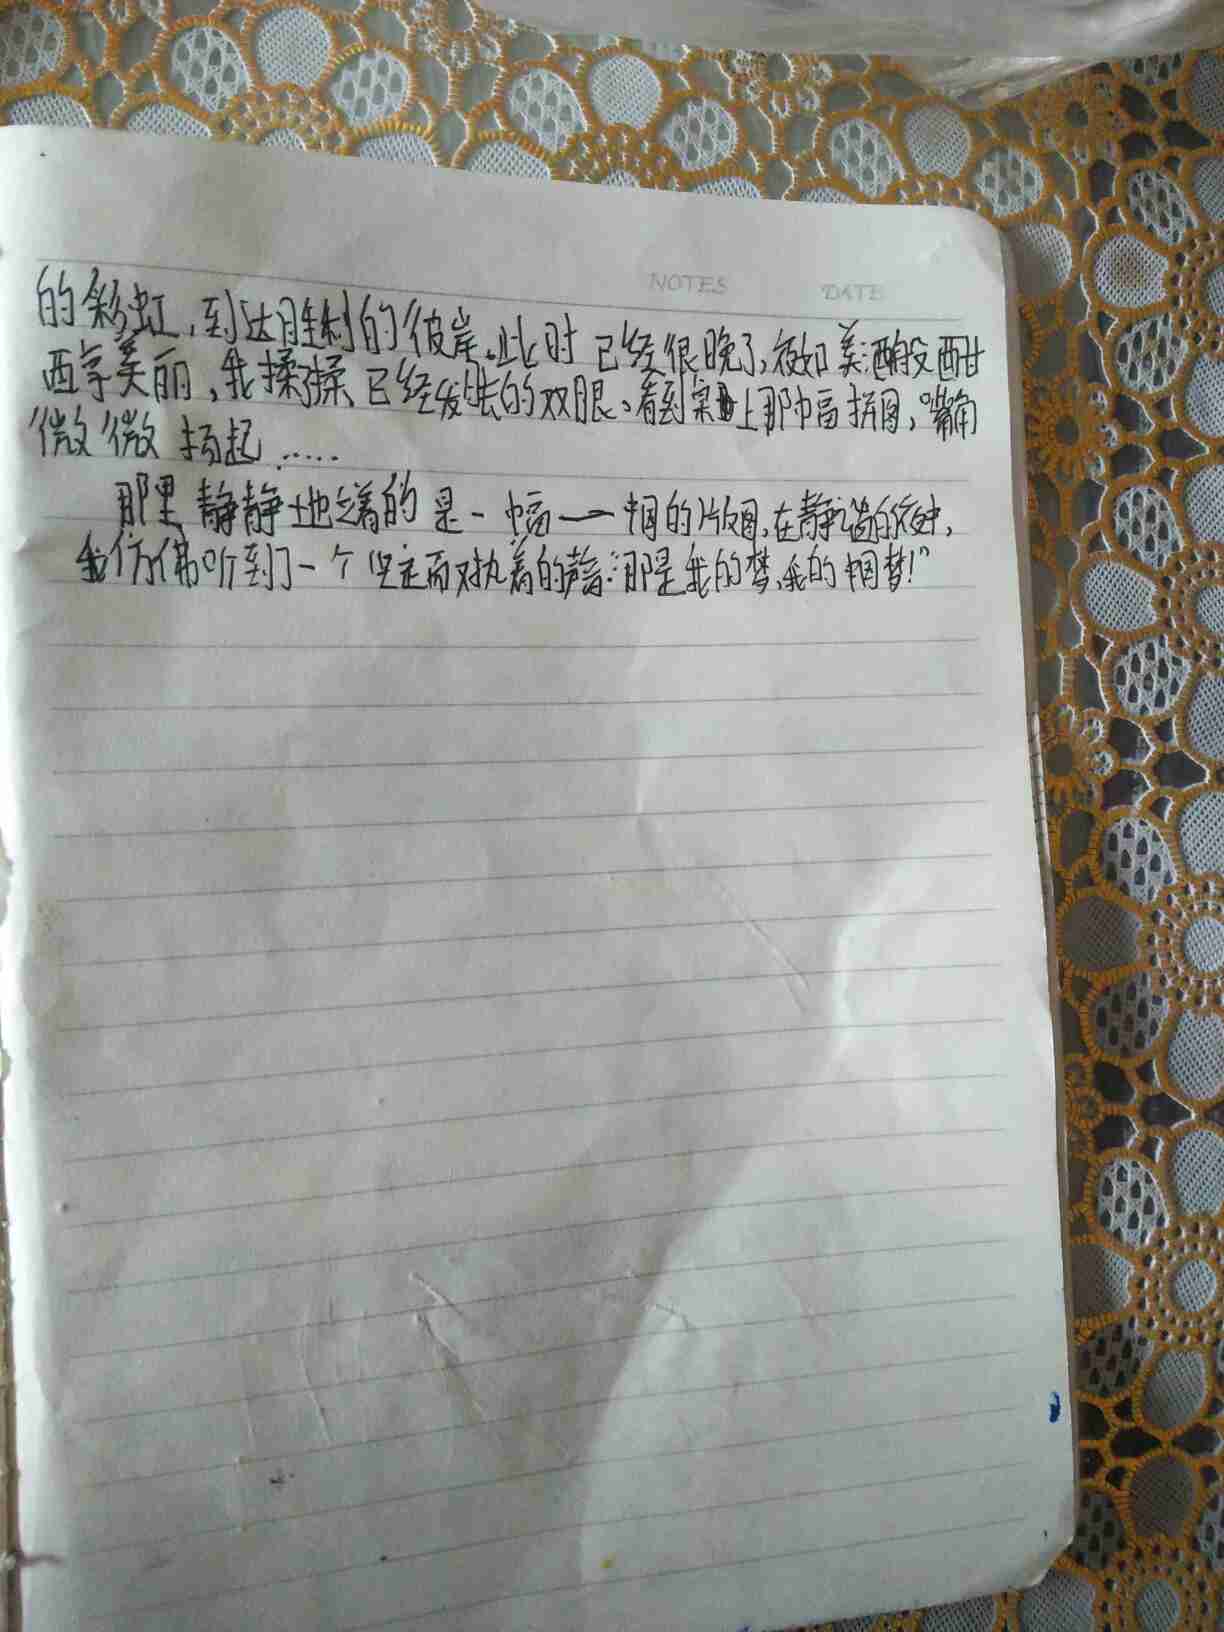 NOTES DATE
的彩虹，到达胜利的彼岸。此时已经很晚了，夜如美酒般酣
醇美丽，我揉揉已经发胀的双眼。看到桌上那幅拼图，嘴角
微微扬起……
那里静静地立着的是一幅——中国的版图，在静谧的夜中，
我仿佛听到了一个坚定而又执着的声音：“那是我的梦，我的中国梦！”